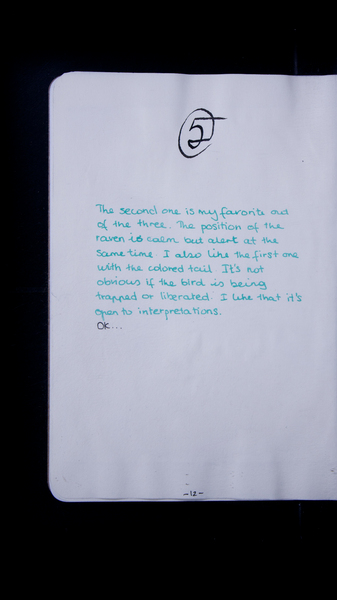 5
The second one is my favorite out
of the three. The position of the
raven is calm but alert at the
same time. I also like the first one
with the colored tail. It's not
obvious if the bird is being
trapped or liberated. I like that it's
open to interpretations.
OK...
-12-